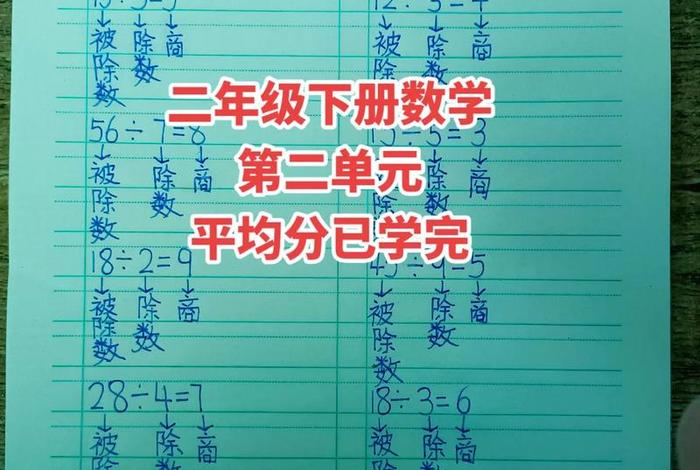 12÷3=4
被除数 除数 商
被除数 除数 商
二年级下册数学
第二单元
平均分已学完
56÷7=8
15÷5=3
被除数 除数 商
除数 商
18÷2=9
45÷9=5
被除数 除数 商
被除数 除数 商
28÷4=7
18÷3=6
被除 除 商
被除 除 商